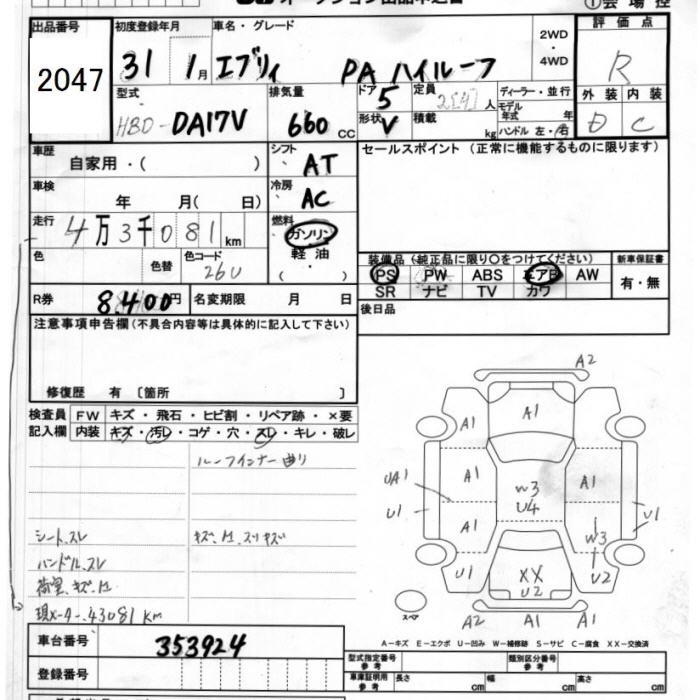 オークション出品申込書
①会場控
出品番号 初度登録年月 車名・グレード 評価点
2047 31 1月 エブリィ PA ハイルーフ 2WD・4WD R
型式 排気量 ドア 定員 ディーラー・並行 外装 内装
HBD-DA17V 660 CC 5 2[4]人 モデル年式 年 D C
形状 V 積載 kg ハンドル 左・右
車歴 自家用・( ) シフト AT セールスポイント (正常に機能するものに限ります)
車検 年 月( 日) 冷房 AC
走行 4万3千081km 燃料 ガソリン 軽油 ・( )
色 色替 色コード 26U
装備品 (純正品に限り○をつけてください) 新車保証書
PS PW ABS エアB AW 有・無
SR ナビ TV カワ
R券 8400円 名変期限 月 日 後日品
注意事項申告欄 (不具合内容等は具体的に記入して下さい)
修復歴 有 〔箇所 〕
検査員記入欄 FW キズ・飛石・ヒビ割・リペア跡・×要
内装 キズ・汚レ・コゲ・穴・スレ・キレ・破レ
ルーフインナー曲リ
シート、スレ キズ、凹、スリキズ
ハンドル、スレ
荷室、キズ、凹
現メーター 43081km
A2
A1 A1
A1 A1
UA1 W3 U4
U1 A1 W3 U1
U1 XX U2 U2
スペア A2 A1 A1
A-キズ E-エクボ U-凹み W-補修跡 S-サビ C-腐食 XX-交換済
車台番号 353924
型式指定番号 参考 類別区分番号 参考
登録番号 車庫証明用 参考 長さ cm 幅 cm 高さ cm